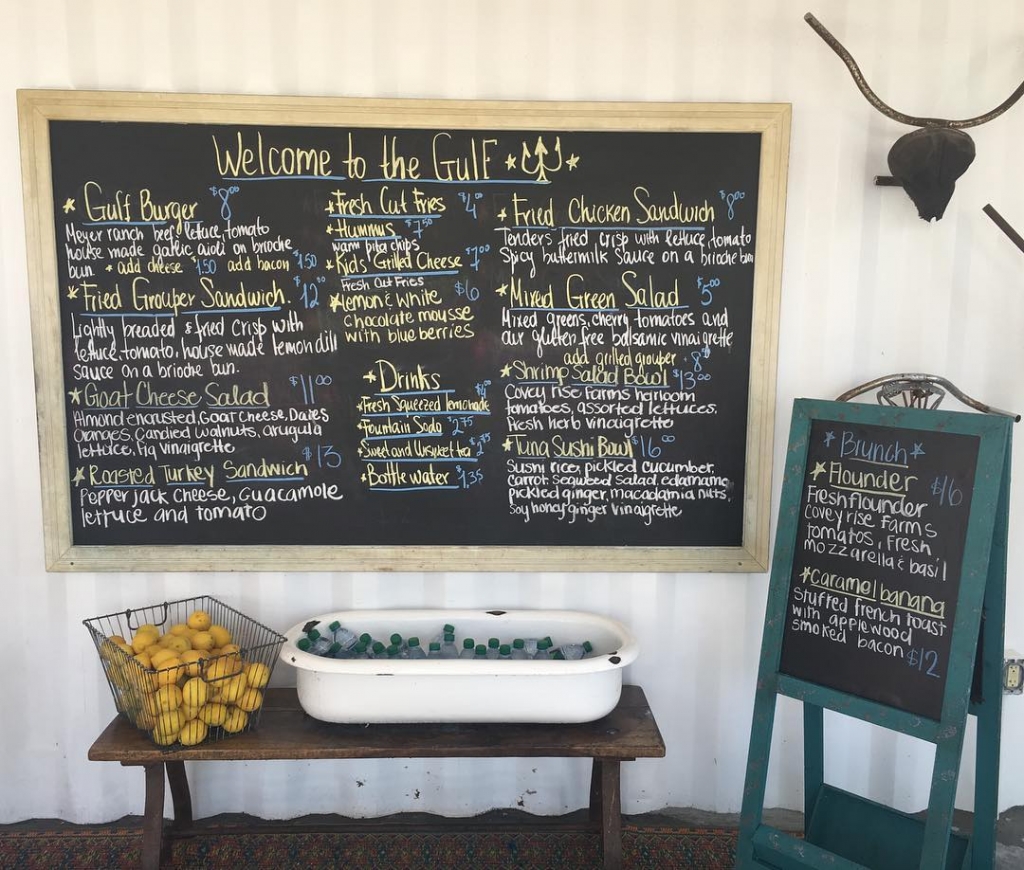 Welcome to the Gulf
Gulf Burger $8.00
Meyer ranch beef, lettuce, tomato
house made garlic aioli on brioche
bun. * add cheese $1.50 add bacon $1.50
Fried Grouper Sandwich. $12.00
Lightly breaded & fried crisp with
lettuce, tomato, house made lemon dill
sauce on a brioche bun.
Goat Cheese Salad $11.00
Almond encrusted, Goat Cheese, Dates
Oranges, Candied walnuts, arugula
lettuce, fig vinaigrette
Roasted Turkey Sandwich $13
Pepper jack cheese, Guacamole
lettuce and tomato
Fresh Cut Fries $4.00
Hummus $7.50
warm pita chips
Kid's Grilled Cheese $7.00
Fresh Cut Fries
lemon & white $6
chocolate mousse
with blueberries
Drinks
Fresh Squeezed lemonade
Fountain Soda 2.75
Sweet and Unsweet tea
Bottle water $1.35
Fried Chicken Sandwich $8.00
Tenders fried crisp with lettuce, tomato
Spicy buttermilk sauce on a brioche bun
Mixed Green Salad $5.00
Mixed greens, cherry tomatoes and
our gluten free balsamic vinaigrette
add grilled grouper $8.00
Shrimp Salad Bowl $13.00
Covey rise Farms heirloom
tomatoes, assorted lettuces.
Fresh herb vinaigrette
Tuna Sushi Bowl $16.00
Sushi rice, pickled cucumber,
carrot, seaweed salad, edamame
pickled ginger, macadamia nuts,
soy honey ginger vinaigrette
Brunch
Flounder $16
Fresh flounder
covey rise Farms
tomatoes, fresh
mozzarella & basil
Caramel banana
stuffed french toast
with applewood
smoked bacon $12